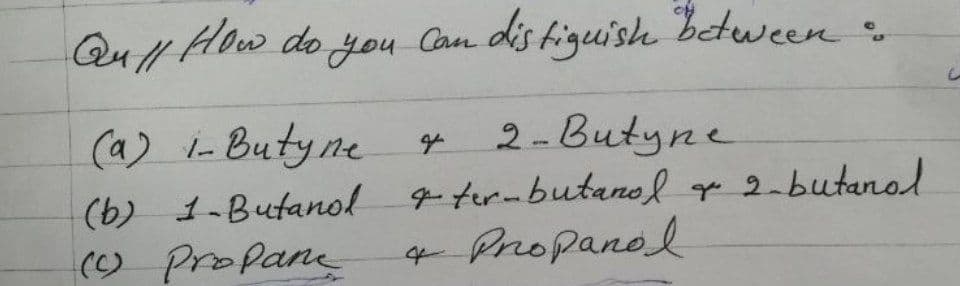 Qu// How do you can distiguish between :
(a) 1-Butyne & 2-Butyne
(b) 1-Butanol & ter-butanol & 2-butanol
(c) Propane & Propanol